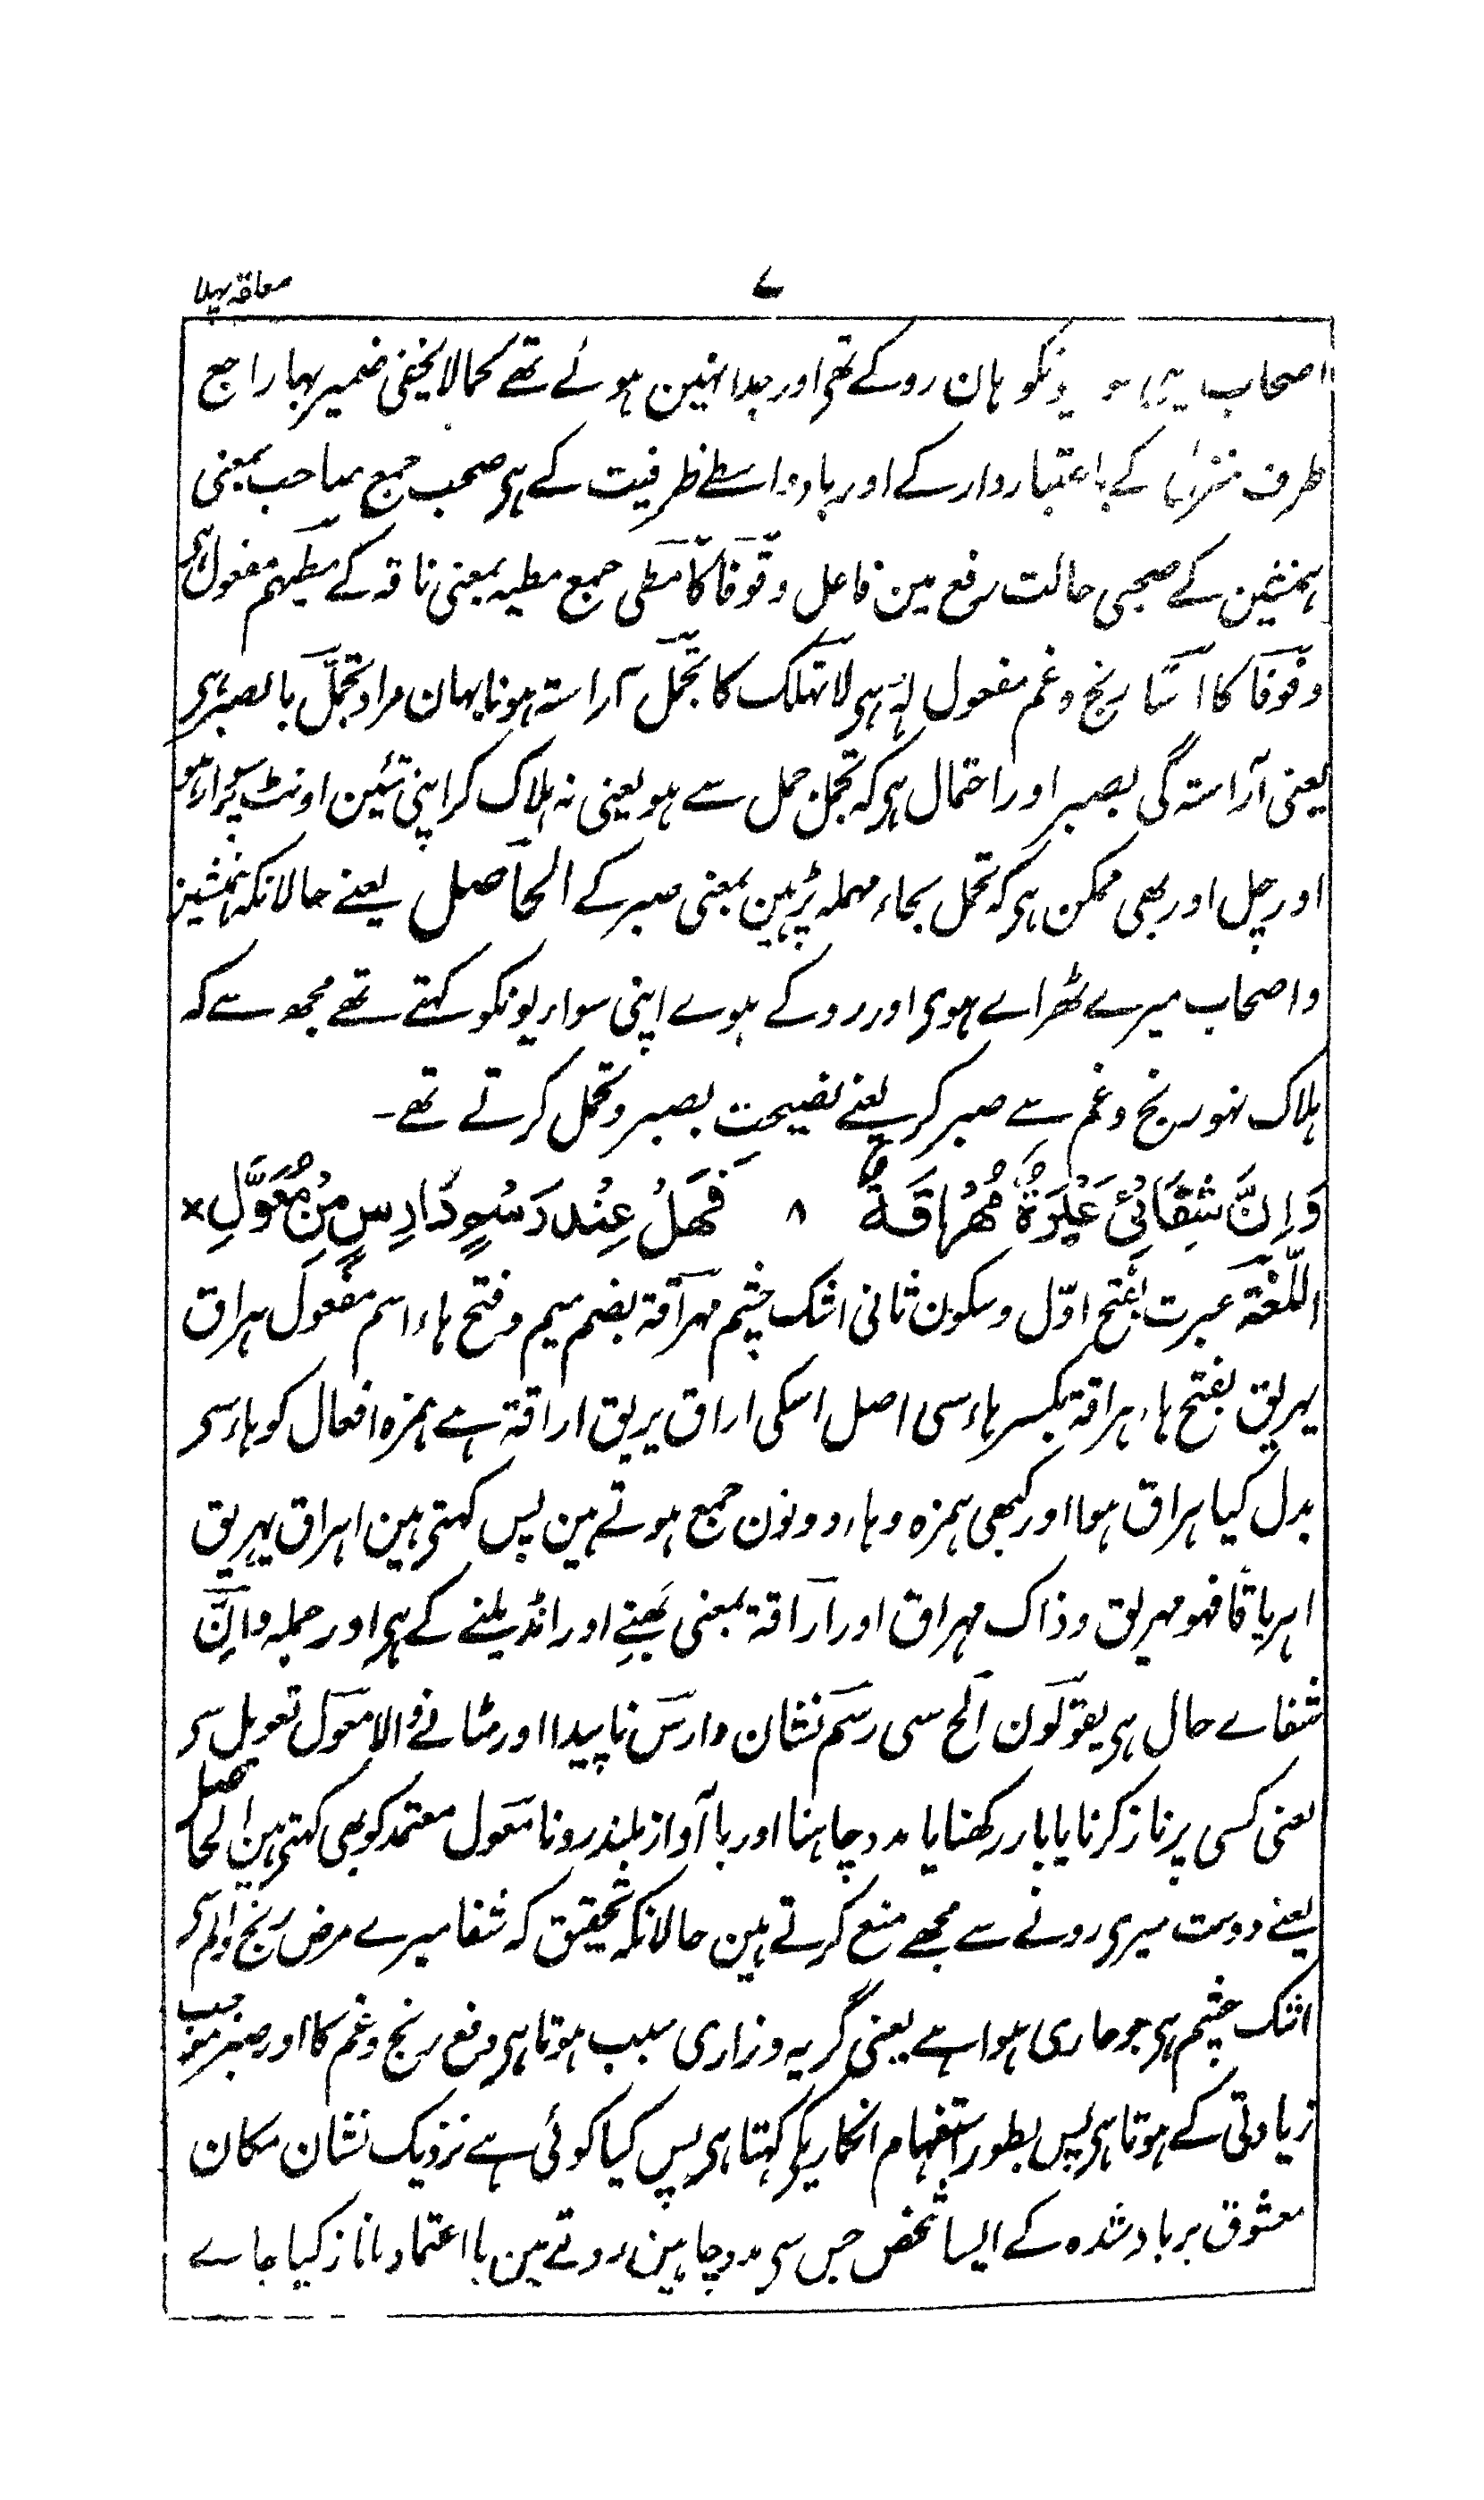 معلقہ پہلا
۷
اصحاب ونکو ہان روکے تھی اور جدا نہین ہوئے تھے کما لا یخفیٰ ضمیر بہا راجع
طرف منزل کے باعتبار دار کے اور باء واسطے ظرفیت کے ہی صحب جمع صاحب بمعنی
ہمنشین کے صحبی حالت رفع مین فاعل وقوفا کا مطی جمع مطیہ بمعنی ناقہ کے مطیہم مفعول ہی
وقوفا کا اسًا رنج و غم مفعول لہ ہی لا تہلک کا تجمل آراستہ ہونا یہان مراد تجمل بالصبر ہی
یعنی آراستہ گی بصبر اور احتمال ہی کہ تجمل جمل سے ہو یعنی نہ ہلاک کر اپنی تئین اونٹ پر سوار ہو
اور چل اور بھی ممکن ہی کہ تحمل بحاء مہملہ پڑہین بمعنی صبر کے الحاصل یعنے حالانکہ ہمنشین
و اصحاب میرے ٹھراے ہوی اور روکے ہوے اپنی سواریونکو کہتے تھے مجھ سے کہ
ہلاک نہو رنج و غم سے صبر کر یعنے نصیحت بصبر و تحمل کرتے تھے۔
وَاِنَّ شِفَائِیْ عَبْرَةٌ مُهْرَاقَةٌ ۸ فَهَلْ عِنْدَ رَسْمٍ دَارِسٍ مِنْ مُعَوَّلِ ×
اللّغة عبرت بفتح اوّل و سکون ثانی اشک چشم مہراقة بضم میم و فتح ہاء اسم مفعول ہراق
یہریق بفتح ہاء ہراقة بکسر ہاء سی اصل اسکی اراق یریق اراقة ہے ہمزہ افعال کو ہاء سی
بدل کیا ہراق ہوا اور کبھی ہمزہ و ہاء دونون جمع ہوتے ہین پس کہتی ہین اہراق یہریق
اہریاقا فہو مہریق و ذاک مہراق اور اراقة بمعنی بہنے اور انڈیلنے کے ہی اور جملہ و اِنَّ
شفاے حال ہی یقولون الخ سی رسم نشان دارس ناپیدا اور مٹانے والا معول تعویل سی
یعنی کسی پر ناز کرنا یا بار رکھنا یا مدد چاہنا اور باآواز بلند رونا معول معتمد کو بھی کہتی ہین الحاصل
یعنے دوست میری رونے سے مجھے منع کرتے ہین حالانکہ تحقیق کہ شفا میرے مرض رنج و الم کی
اشک چشم ہی جو جاری ہوا ہے یعنی گریہ و زاری سبب ہوتا ہی دفع رنج و غم کا اور صبر موجب
زیادتی کے ہوتا ہی پس بطور استفہام انکاریکے کہتا ہی پس کیا کوئی ہے نزدیک نشان مکان
معشوق برباد شدہ کے ایسا شخص جس سی مدد چاہین رونے مین یا اعتماد یا ناز کیا جاے